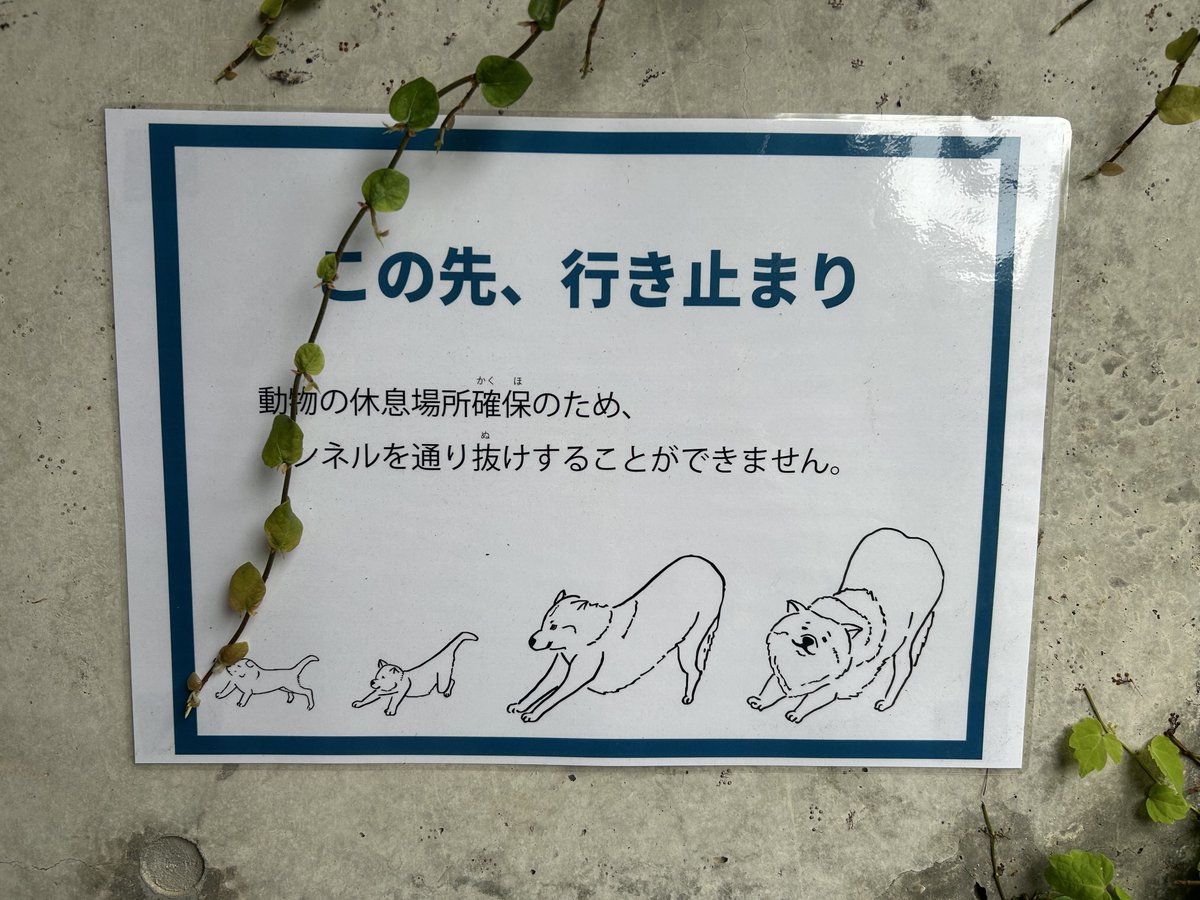 この先、行き止まり
動物の休息場所確保のため、
かく ほ
ンネルを通り抜けすることができません。
ぬ